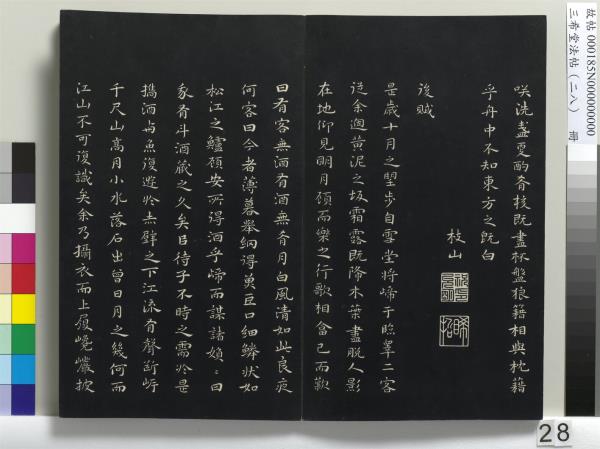 咲洗盞更酌肴核既盡杯盤狼籍相與枕籍
乎舟中不知東方之既白
枝山
後賦
是歲十月之望步自雪堂將歸于臨皋二客
從余過黃泥之坂霜露既降木葉盡脫人影
在地仰見明月顧而樂之行歌相畣已而歎
曰有客無酒有酒無肴月白風清如此良夜
何客曰今者薄暮舉網得魚巨口細鱗狀如
松江之鱸顧安所得酒乎歸而謀諸婦婦曰
我有斗酒藏之久矣以待子不時之需於是
攜酒與魚復遊於赤壁之下江流有聲斷岸
千尺山高月小水落石出曾日月之幾何而
江山不可復識矣余乃攝衣而上履巉巖披
故帖 000185N000000000
三希堂法帖（二八） 冊
28